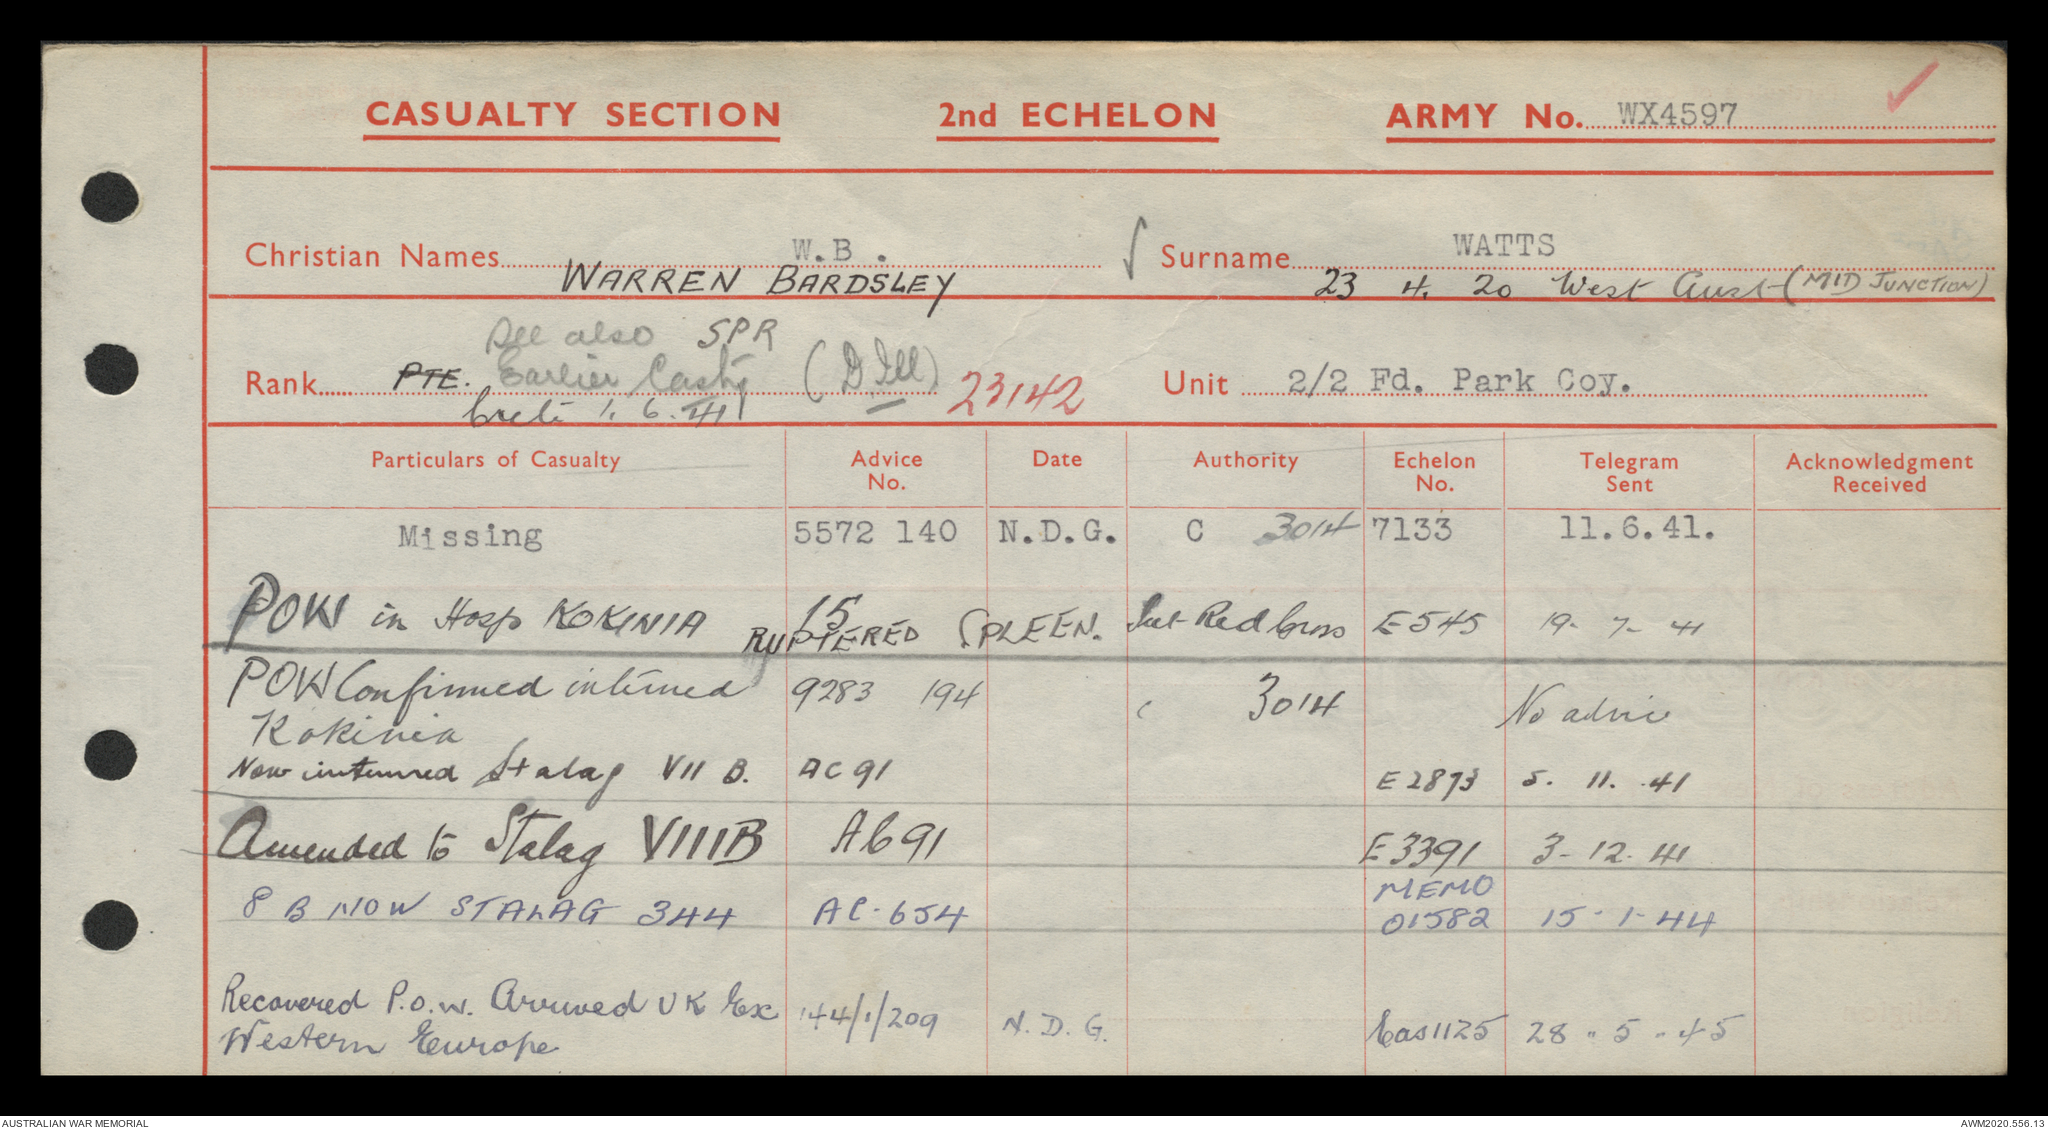 CASUALTY SECTION 2nd ECHELON ARMY No. WX4597
Christian Names W.B. Surname WATTS
WARREN BARDSLEY 23 4. 20 West Aust (MID JUNCTION)
See also SPR
Rank PTE. Earlier Casty (D Ill) 23142 Unit 2/2 Fd. Park Coy.
Crete 1. 6. 41
Particulars of Casualty Advice No. Date Authority Echelon No. Telegram Sent Acknowledgment Received
Missing 5572 140 N.D.G. C 3014 7133 11.6.41.
POW in Hosp KOKINIA 15 Int Red Cross E545 19- 7- 41
RUPTERED SPLEEN.
POW Confirmed interned 9283 194 C 3014 No advice
Kokinia
Now interned Stalag VII B. AC91 E2873 5. 11. 41
Amended to Stalag VIIIB AC91 E3391 3- 12. 41
8 B NOW STALAG 344 AC-654 MEMO 01582 15-1-44
Recovered P.O.W. Arrived UK Ex 144/1/209 N.D.G. Cas1125 28 " 5 " 45
Western Europe
AUSTRALIAN WAR MEMORIAL AWM2020.556.13